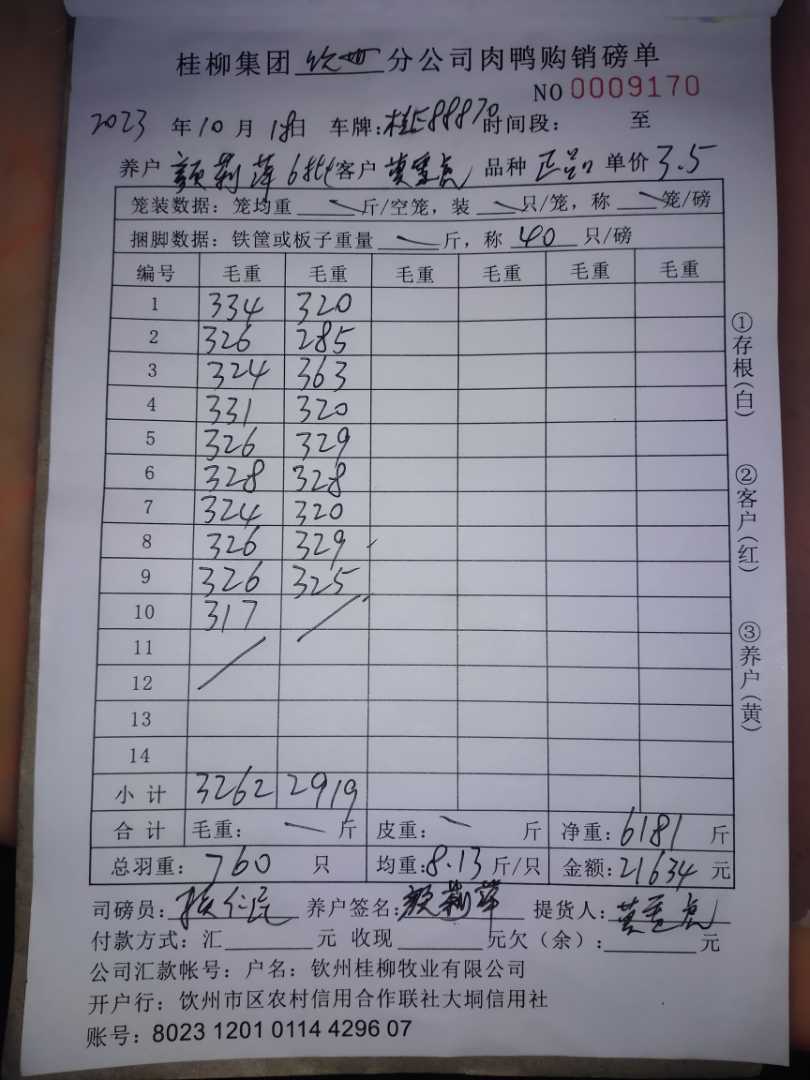 桂柳集团 钦州 分公司肉鸭购销磅单
NO 0009170
2023 年 10 月 18日 车牌:桂E88870 时间段: 至
养户 颜莉萍 6批 客户 黄重虎 品种 正品 单价 3.5
笼装数据:笼均重 斤/空笼,装 只/笼,称 笼/磅
捆脚数据:铁筐或板子重量 斤,称 40 只/磅
编号 毛重 毛重 毛重 毛重 毛重 毛重
1 334 320
2 326 285
3 324 363
4 331 320
5 326 329
6 328 328
7 324 320
8 326 329
9 326 325
10 317
11
12
13
14
小计 3262 2919
合计 毛重: 斤 皮重: 斤 净重:6181 斤
总羽重:760 只 均重:8.13 斤/只 金额:21634 元
司磅员: 养户签名:颜莉萍 提货人:黄重虎
付款方式:汇 元 收现 元欠(余): 元
公司汇款帐号:户名:钦州桂柳牧业有限公司
开户行:饮州市区农村信用合作联社大垌信用社
账号:8023 1201 0114 4296 07
①存根(白) ②客户(红) ③养户(黄)